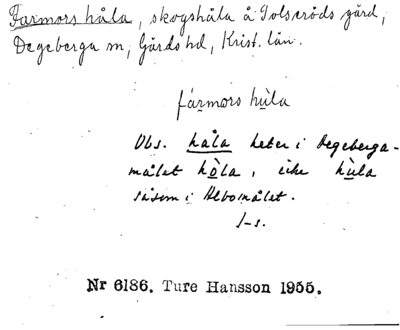 Farmors håla, skogshåla å Tolseröds gård,
Degeberga sn, Gärds hd, Krist. län.
fármors hùla
Obs. håla heter i Degeberga-
målet hòla, icke hùla
såsom i Albomålet.
I-s.
Nr 6186. Ture Hansson 1955.